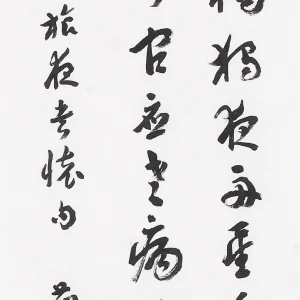 獨夜舟星
官應老病
旅夜書懷句